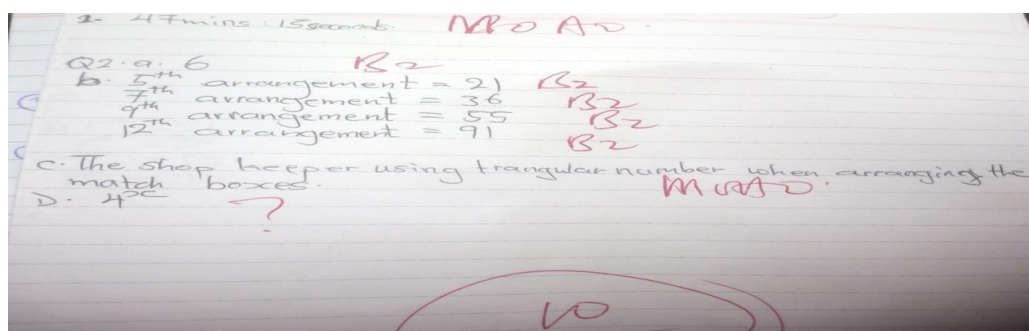 1. 47mins : 15seconds. M0 A0
Q2.a. 6 B2
b. 5th arrangement = 21 B2
7th arrangement = 36 B2
9th arrangement = 55 B2
12th arrangement = 91 B2
C. The shop keeper using trangular number when arranging the
match boxes.
D. ?
10